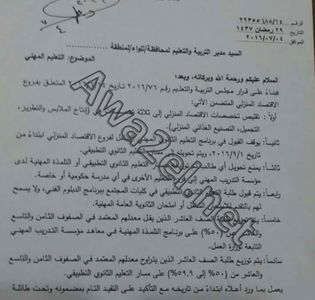 الرقم ٢٩٣٥٥/٨٨/١٤
٢٩ رمضان ١٤٣٧
الموافق ٢٠١٦/٠٧/٠٤
السيد مدير التربية والتعليم لمحافظة/للواء/لمنطقة
الموضوع: التعليم المهني
السلام عليكم ورحمة الله وبركاته، وبعد؛
فبناءً على قرار مجلس التربية والتعليم رقم ٢٠١٦/٧٦ تاريخ المتعلق بفروع
الاقتصاد المنزلي المتضمن الآتي:
أولاً: تقليص تخصصات الاقتصاد المنزلي إلى ثلاثة (إنتاج الملابس والتطريز،
التجميل، التصنيع الغذائي المنزلي).
ثانياً: يوقف القبول في برنامج التعليم الثانوي لفروع الاقتصاد المنزلي ابتداءً من
تاريخ ٢٠١٦/٩/١ ويتم الثانوي التطبيقي.
ثالثاً: يمنع تحويل أي الثانوي التطبيقي أو التلمذة المهنية لدى
مؤسسة التدريب المهني إلى التعليم الأخرى في أي مدرسة حكومية أو خاصة.
رابعاً: يتم قبول طلبة التطبيقي في كليات المجتمع ببرنامج الدبلوم الفني، ولا يسمح
لهم أو امتحان الثانوية العامة المهنية.
خامساً: يتم الصف العاشر الذين يقل معدلهم المعتمد في الصفوف الثامن والتاسع
والعاشر عن (٥٠%) على برنامج التلمذة المهنية في معاهد مؤسسة التدريب المهني
التابعة لوزارة العمل.
سادساً: يتم توزيع طلبة الصف العاشر الذين يتراوح معدلهم المعتمد في الصفوف الثامن والتاسع
والعاشر من (٥٠% إلى ٥١,٩%) على مسار التعليم الثانوي التطبيقي.
يعمل بما ورد أعلاه ابتداءً من تاريخه مع التأكيد على التقيد التام بمضمونه وتحت طائلة
Awazel.net